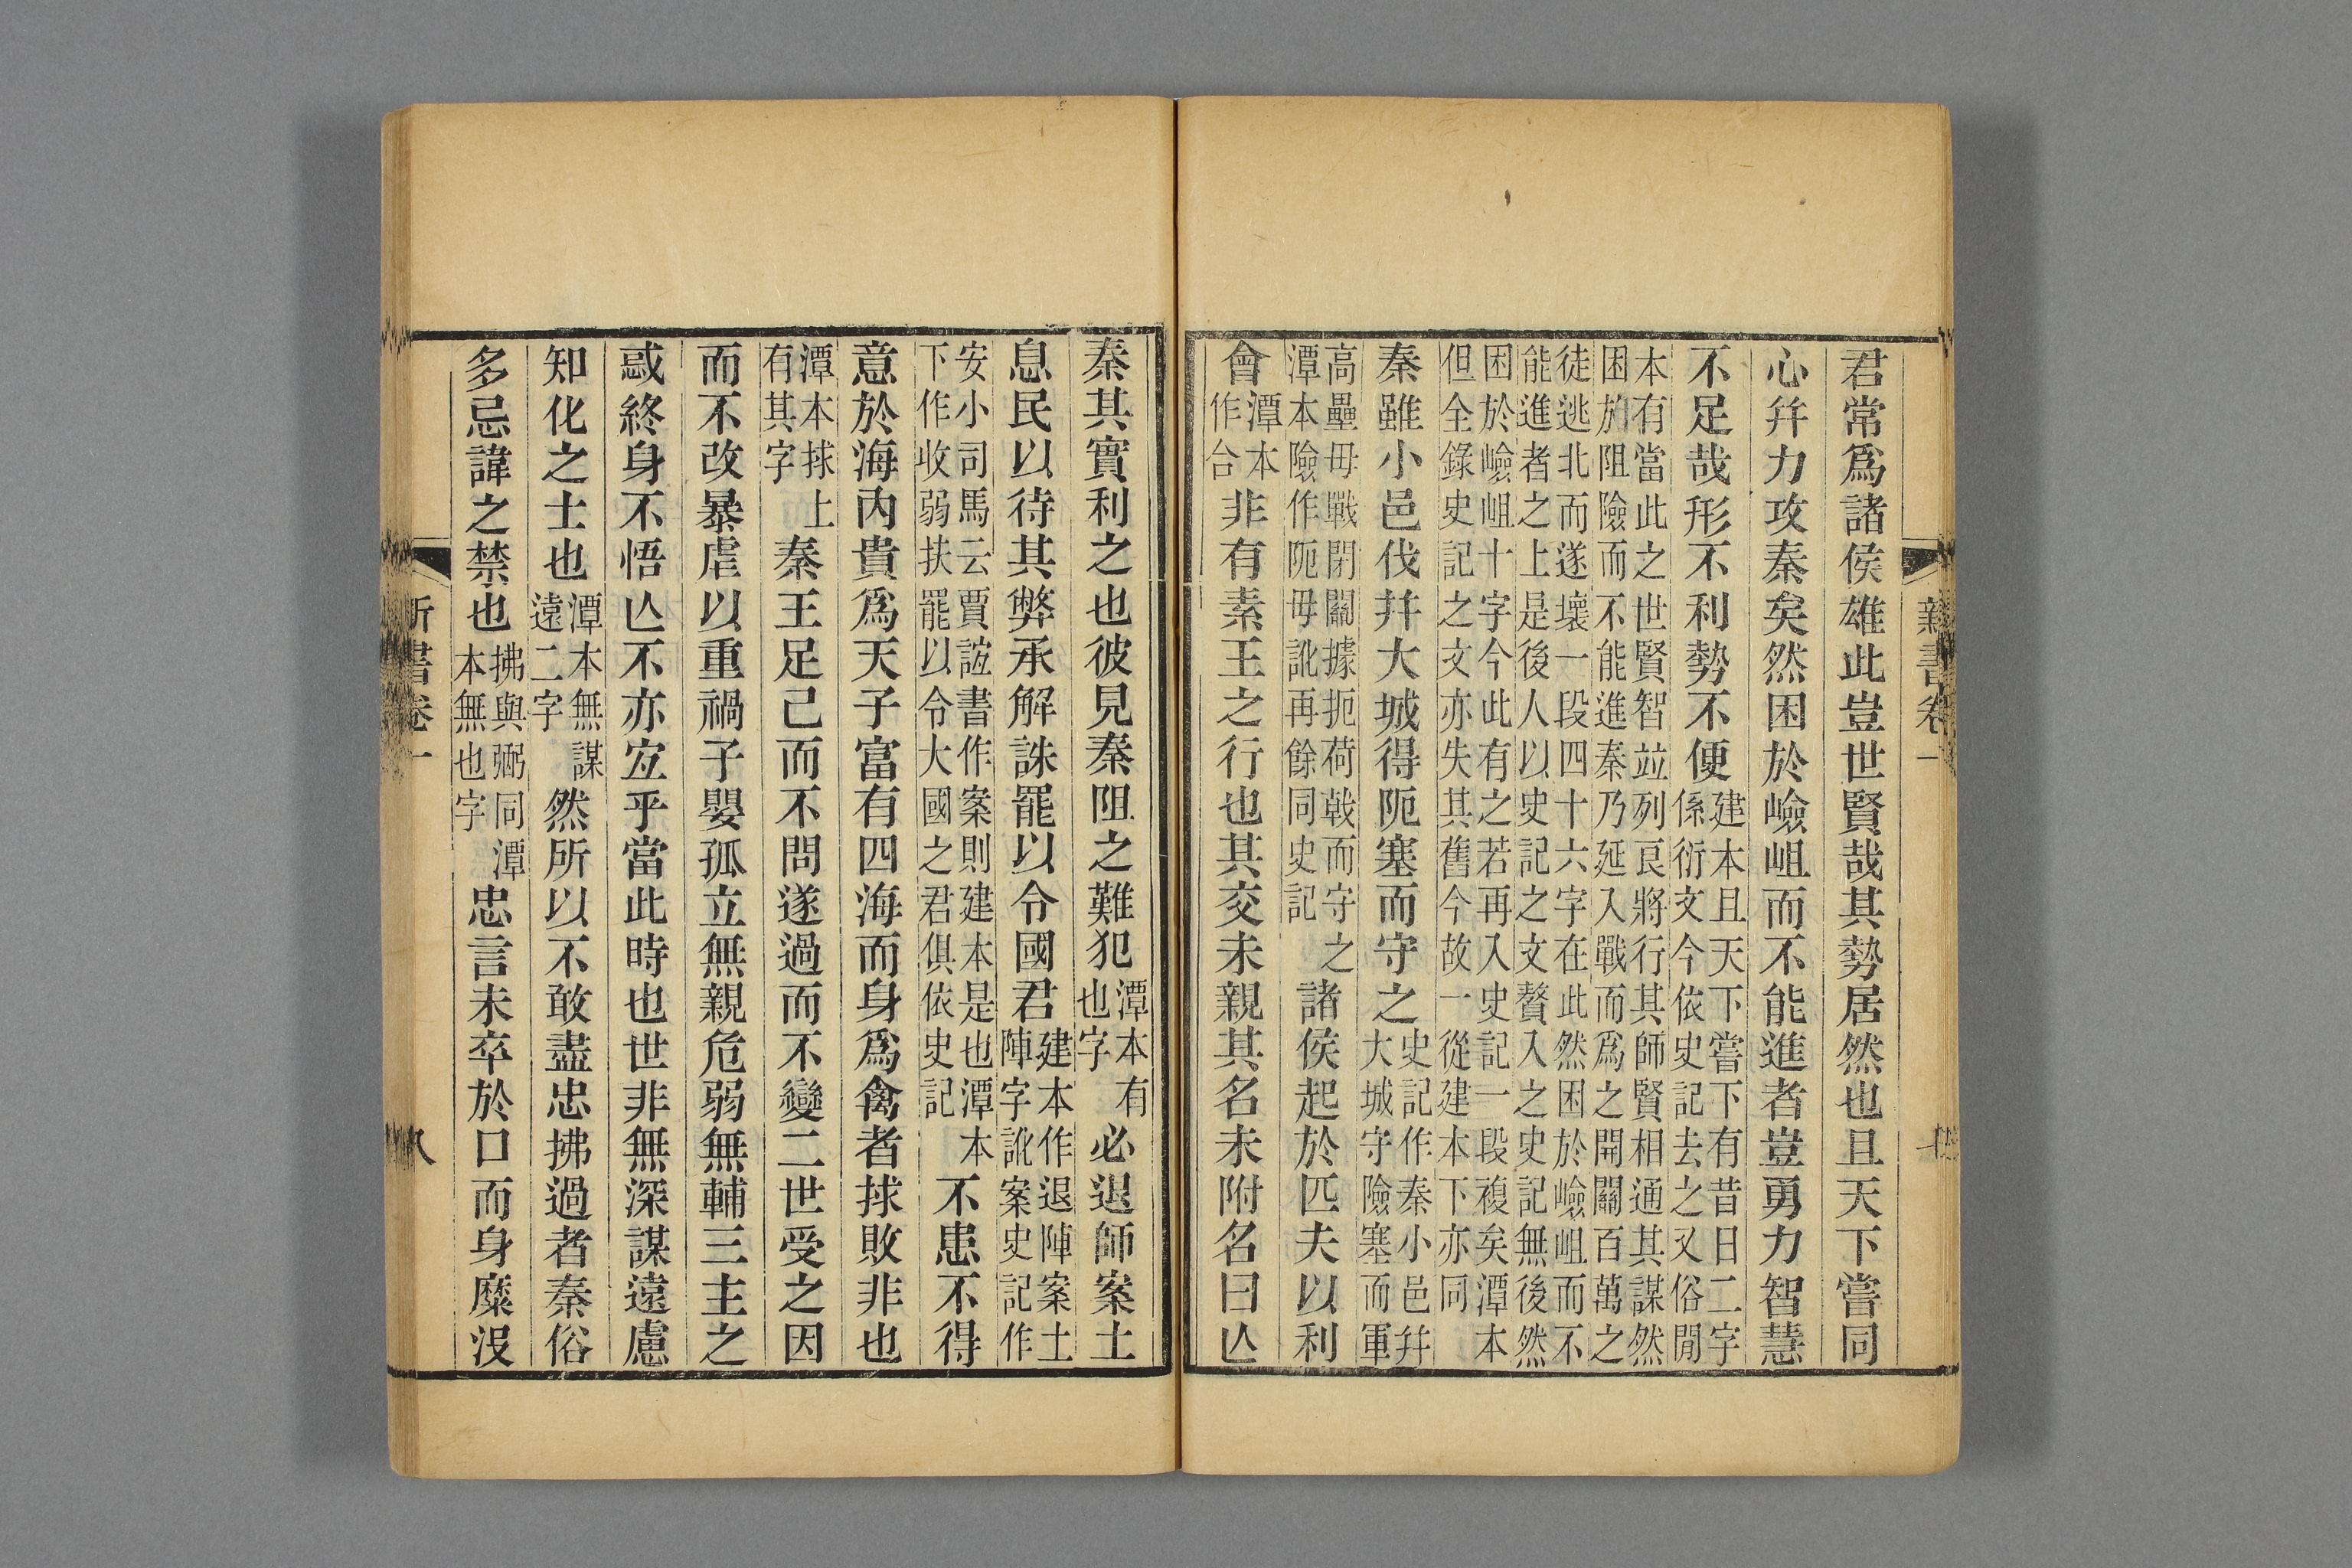 新書卷一
七
君常爲諸侯雄此豈世賢哉其勢居然也且天下嘗同
心幷力攻秦矣然困於嶮岨而不能進者豈勇力智慧
不足哉形不利勢不便建本且天下嘗下有昔日二字係衍文今依史記去之又俗閒
本有當此之世賢智竝列良將行其師賢相通其謀然
困於阻險而不能進秦乃延入戰而爲之開關百萬之
徒逃北而遂壞一段四十六字在此然困於嶮岨而不
能進者之上是後人以史記之文贅入之史記無後然
困於嶮岨十字今此有之若再入史記一段複矣潭本
但全錄史記之文亦失其舊今故一從建本下亦同
秦雖小邑伐幷大城得阨塞而守之史記作秦小邑幷大城守險塞而軍
高壘毋戰閉關據扼荷戟而守之潭本險作阨毋訛再餘同史記諸侯起於匹夫以利
會潭本作合非有素王之行也其交未親其名未附名曰亾
秦其實利之也彼見秦阻之難犯潭本有也字必退師案土
息民以待其弊承解誅罷以令國君建本作退陣案土陣字訛案史記作
安小司馬云賈誼書作案則建本是也潭本下作收弱扶罷以令大國之君俱依史記不患不得
意於海內貴爲天子富有四海而身爲禽者捄敗非也
潭本捄上有其字秦王足己而不問遂過而不變二世受之因
而不改暴虐以重禍子嬰孤立無親危弱無輔三主之
惑終身不悟亾不亦宐乎當此時也世非無深謀遠慮
知化之士也潭本無謀遠二字然所以不敢盡忠拂過者秦俗
多忌諱之禁也拂與弼同潭本無也字忠言未卒於口而身糜沒
新書卷一
八